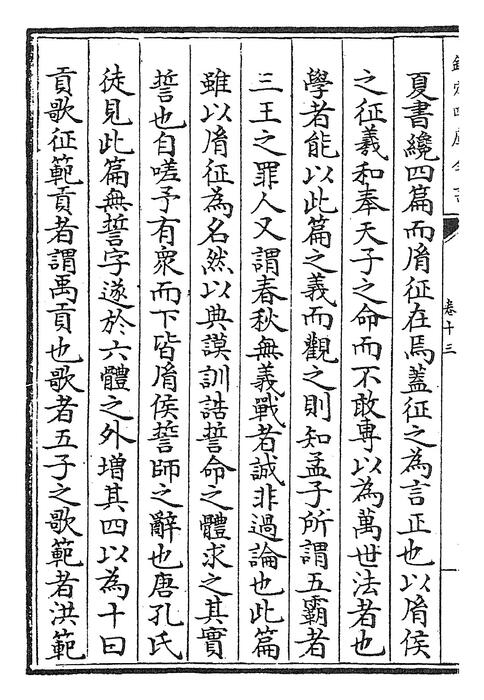 欽定四庫全書
卷十三
夏書纔四篇而胤征在焉蓋征之為言正也以胤侯
之征羲和奉天子之命而不敢專以為萬世法者也
學者能以此篇之義而觀之則知孟子所謂五霸者
三王之罪人又謂春秋無義戰者誠非過論也此篇
雖以胤征為名然以典謨訓誥誓命之體求之其實
誓也自嗟予有衆而下皆胤侯誓師之辭也唐孔氏
徒見此篇無誓字遂於六體之外增其四以為十曰
貢歌征範貢者謂禹貢也歌者五子之歌範者洪範